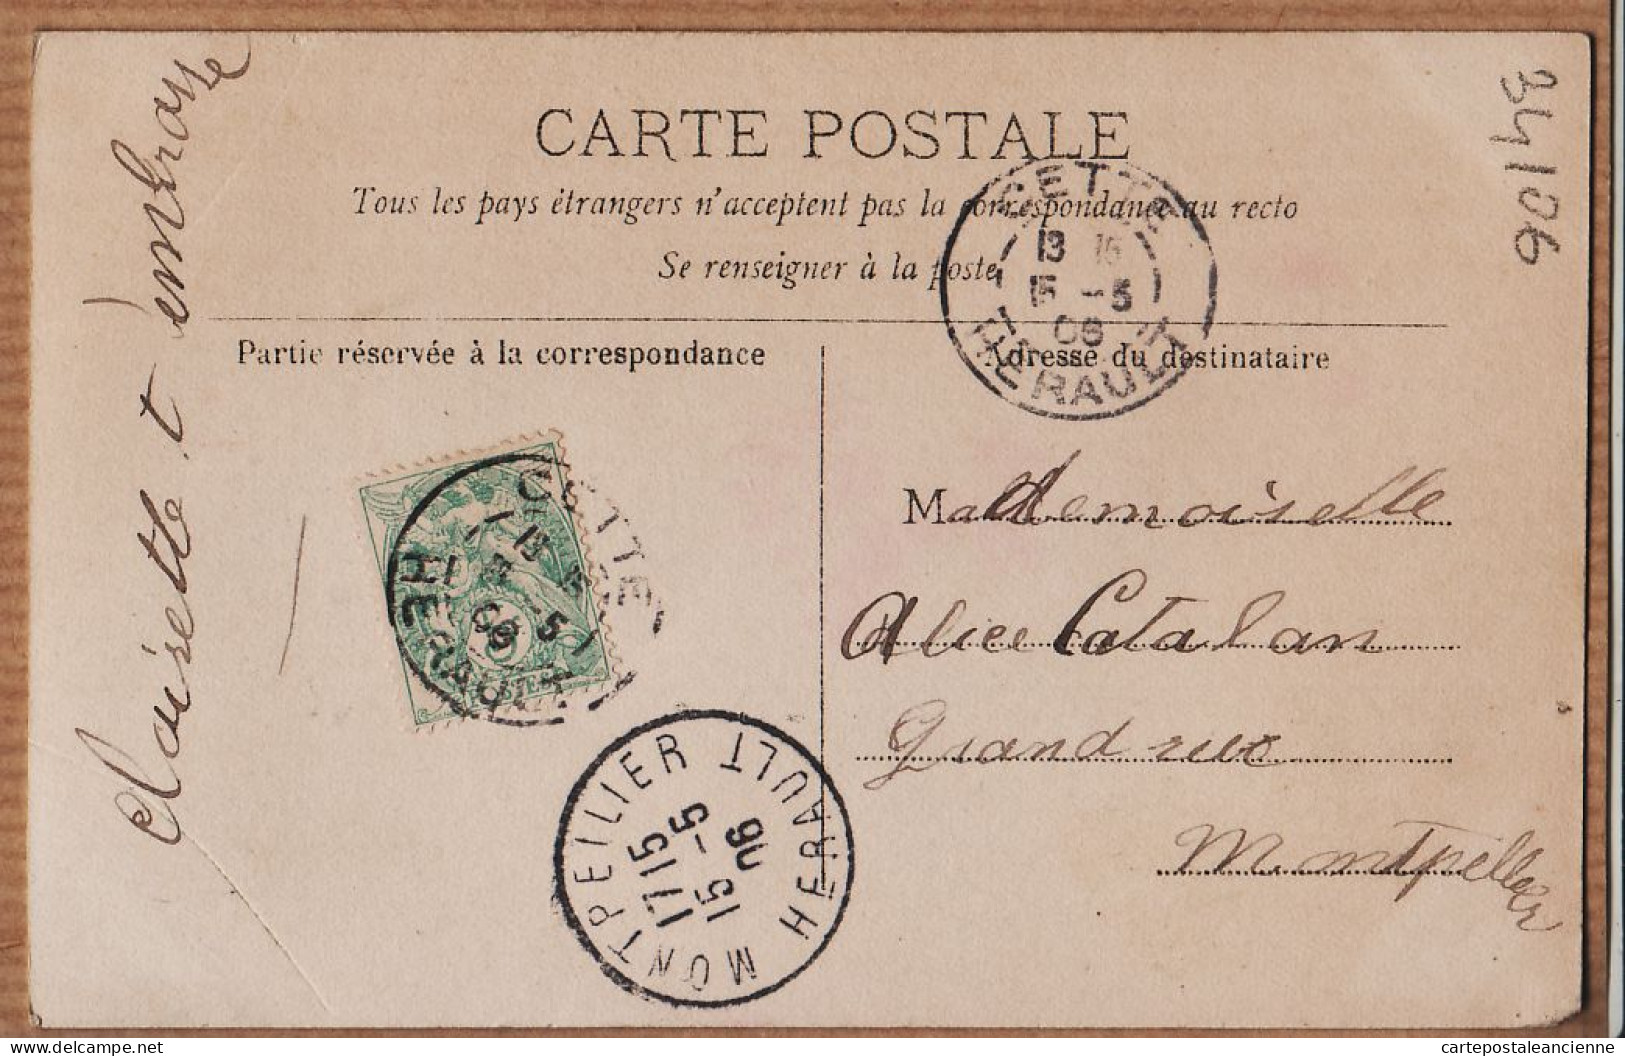 CARTE POSTALE
Tous les pays étrangers n'acceptent pas la correspondance au recto
Se renseigner à la poste
Partie réservée à la correspondance
Adresse du destinataire
Clairette t'embrasse
34/06
CETTE
15 -5
06
HERAULT
CETTE
HERAULT
5
MONTPELLIER HERAULT
17 15
15 -5
06
Mademoiselle
Alice Catalan
Grand rue
Montpellier
delcampe.net
cartepostaleancienne